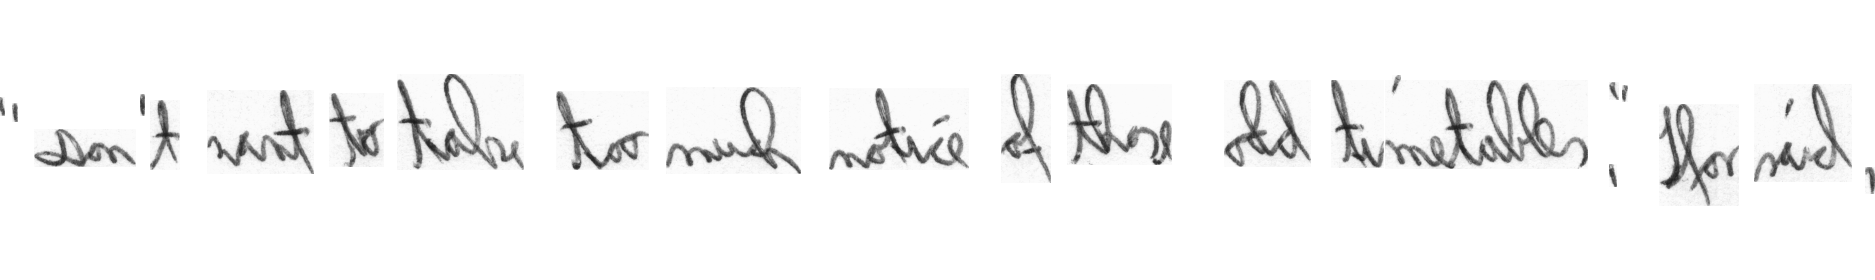 "Don't want to take too much notice of those old timetables," Ifor said,